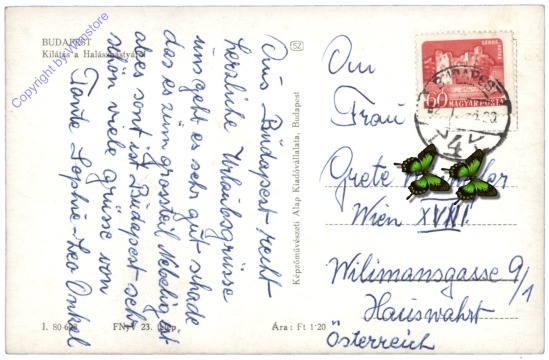 BUDAPEST
Kilátás a Halászbástyáról
Copyright by Wignstore
Aus Budapest recht
herzliche Urlaubsgrüsse
uns geht es sehr gut schade
das es zum grossteil Nebelig ist
aber sonst ist Budapest sehr
schön viele grüsse von
Tante Sophie - Leo Onkel
I. 80-
FNyV 23. telep
Ára: Ft 1·20
SZ
Képzőművészeti Alap Kiadóvállalata, Budapest
60 MAGYAR POSTA
BUDAPEST
4
An
Frau
Grete
Wien XVIII
Wilimansgasse 9/1
Hauswahrt
Österreich